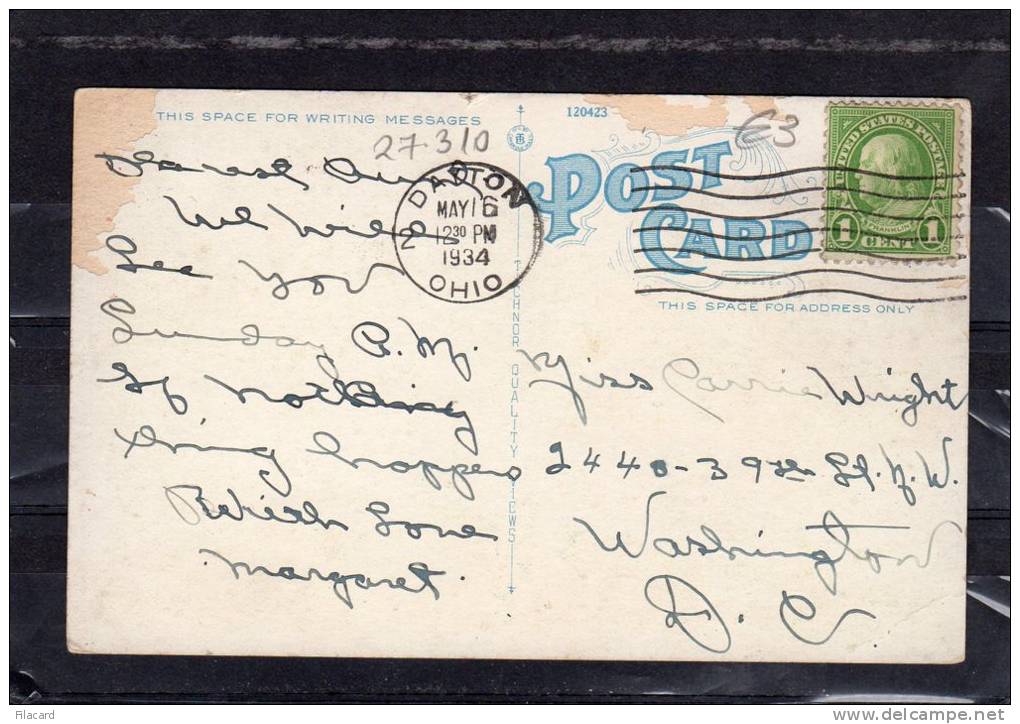 THIS SPACE FOR WRITING MESSAGES
120423
27310
€3
POST
CARD
UNITED STATES POSTAGE
FRANKLIN
1 CENT 1
DAYTON
MAY 16
12 30 PM
1934
OHIO
THIS SPACE FOR ADDRESS ONLY
TECHNOR QUALITY VIEWS
Dearest
We Will
See you
Sunday P.M.
If nothing
happens
With Love
Margaret.
Miss Carrie Wright
2440-39th St. N.W.
Washington
D.C.
Filacard
http://www.delcampe.net